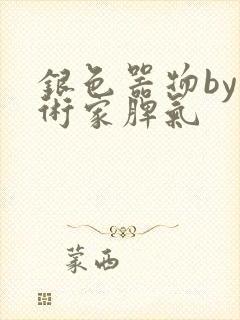 銀色器物by
術家脾氣
蒙面